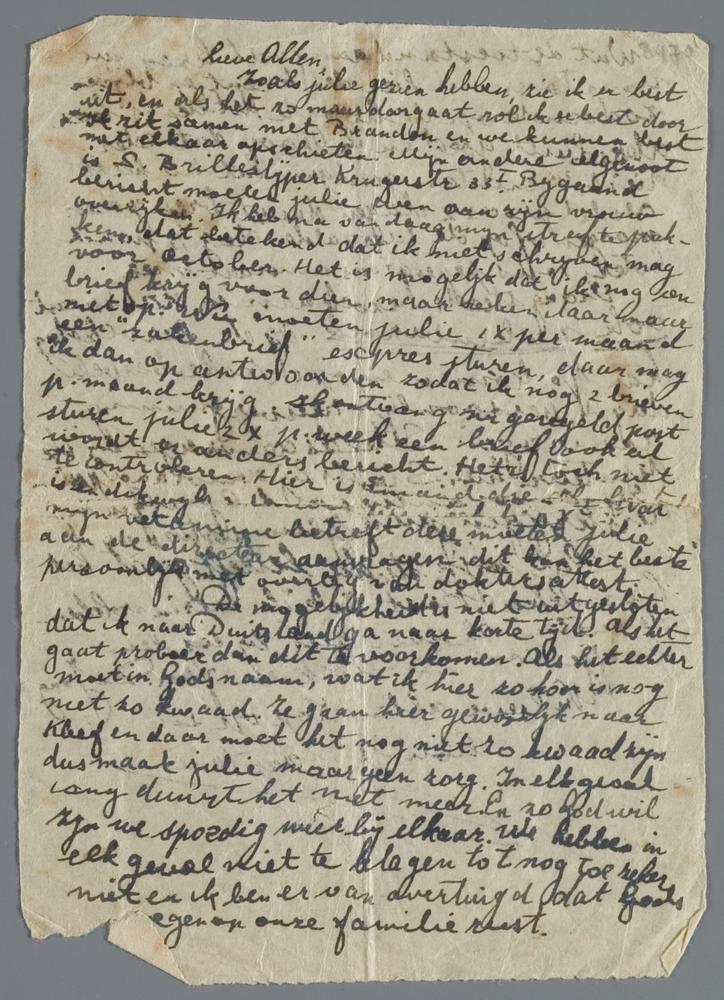 lieve Allen,
Zoals julie gezien hebben, zie ik er best
uit, en als het zo maar doorgaat rol ik er best door
Ik zit samen met Brandon en we kunnen best
met elkaar opschieten. Mijn andere celgenoot
is S. Brilleslijper Krugerstr 33I. Bygaand
bericht moeten julie even aan zijn vrouw
overrijken. Ik heb na vandaag mijn straf te pak-
ken, dat betekend dat ik niet schryven mag
voor October. Het is mogelijk dat ik nog een
brief krijg voor dien, maar reken daar maar
niet op. Wel moeten julie 1x per maand
een "zakenbrief" expres sturen, daar mag
ik dan op antwoorden zodat ik nog 2 brieven
p. maand krijg. Ik ontvang nu geregeld post
sturen julie 2 x p. week een brief ook al
wordt er anders bericht. Het is toch niet
te controleren. Hier is iemand die
is en dikwyls
mijn vetamine betreft deze moeten julie
aan de directeur aanvragen dit kan het beste
persoonlijk met overleg van doktersattest.
De mogelijkheid is niet uitgesloten
dat ik naar Duitsland ga naar korte tijd. Als het
gaat probeer dan dit te voorkomen. Als het echter
moet in Godsnaam, wat ik hier zo hoor is nog
niet zo kwaad. Ze gaan hier gewoonlijk naar
Kleef en daar moet het nog niet zo kwaad zijn
dus maak julie maar geen zorg. In elk geval
lang duurt het niet meer. En zo God wil
zijn we spoedig weer bij elkaar. We hebben in
elk geval niet te klagen tot nog toe zeker
niet en ik ben er van overtuigd dat Gods
egen op onze familie rust.